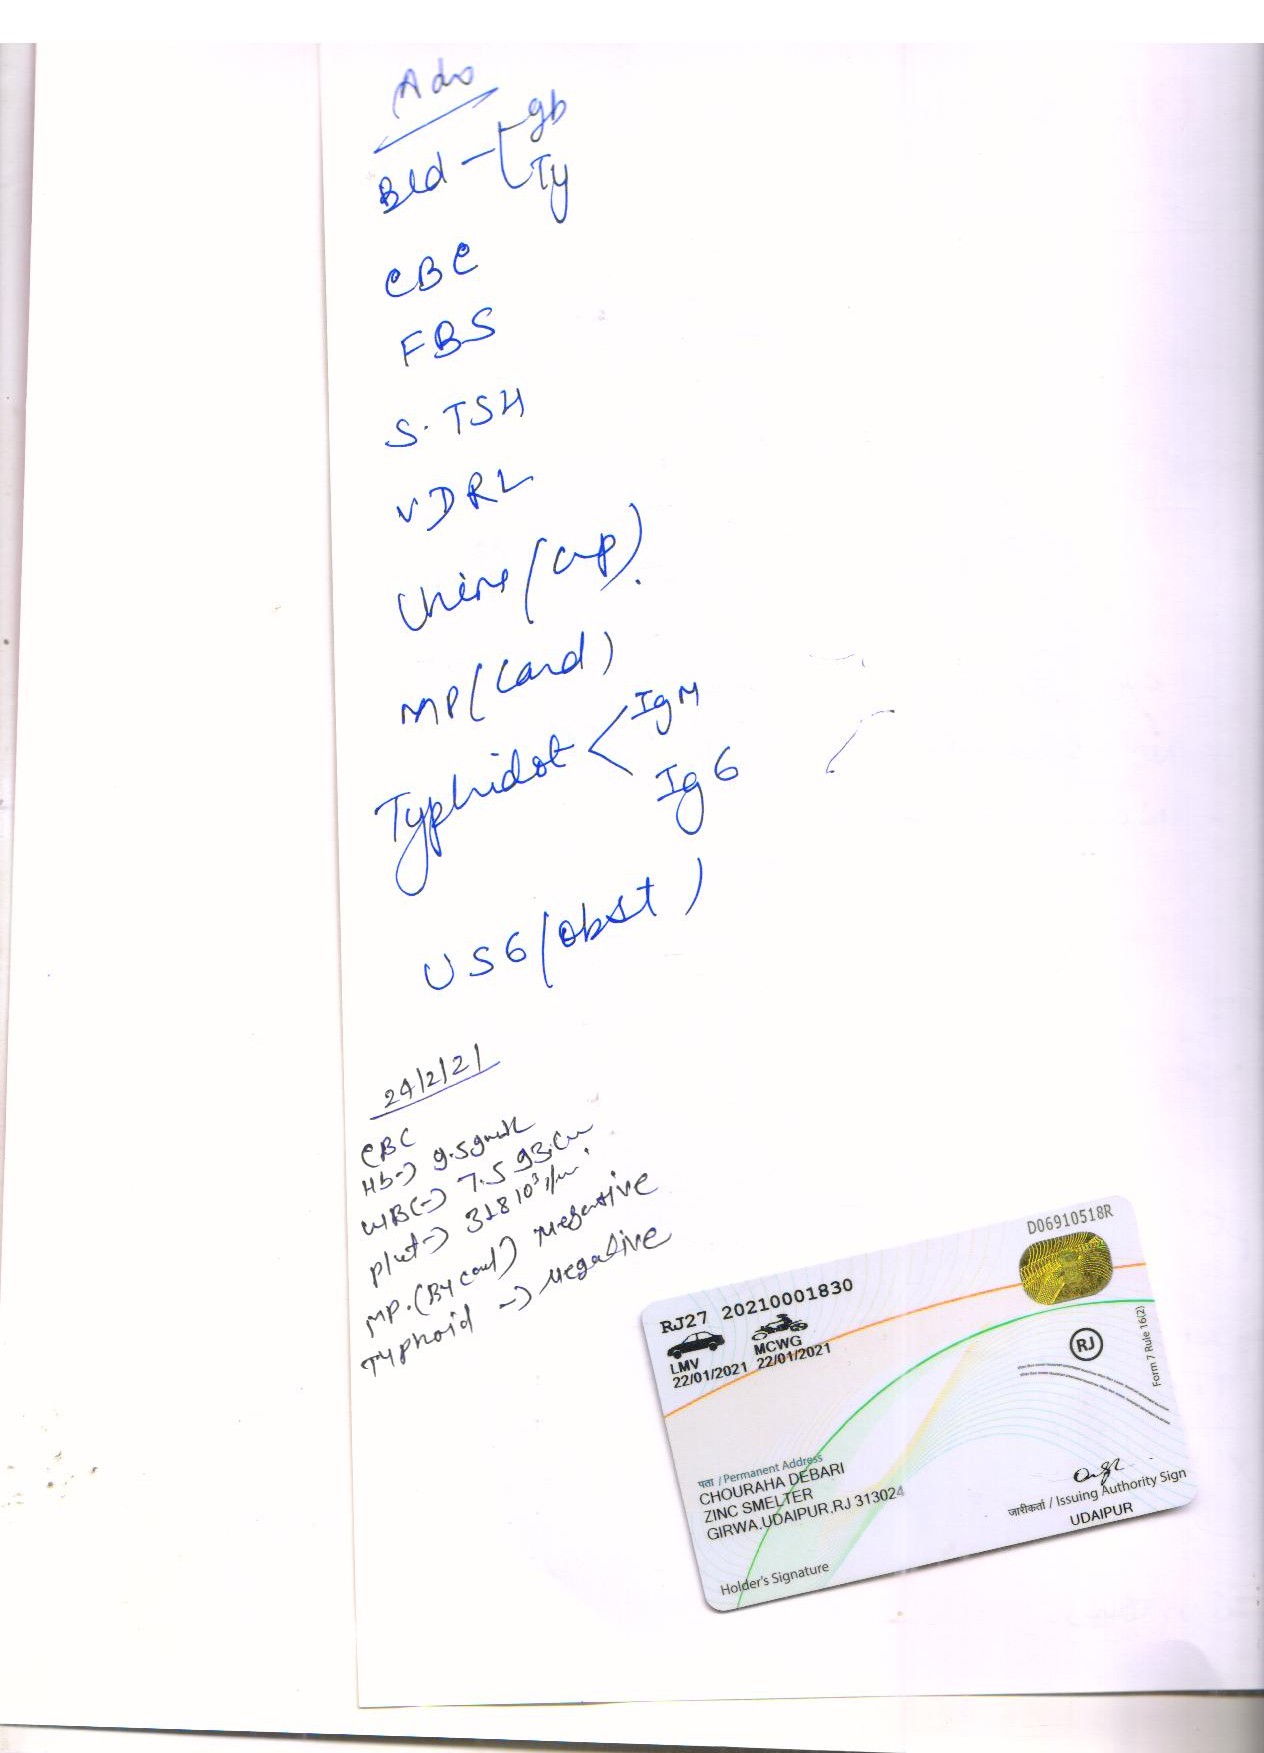 Adv
Bld - [ gb
Ty
CBC
FBS
S. TSH
VDRL
Urine (cmp)
MP (Card)
Typhidot < IgM
IgG
USG (obst)
24/2/21
CBC
Hb → 9.5 gm%
WBC → 7.5 93.
plut → 318 10³/
MP. (By card) Negative
Typhoid → Negative
D06910518R
RJ27 20210001830
LMV MCWG
22/01/2021 22/01/2021
RJ
Form 7 Rule 16(2)
पता / Permanent Address
CHOURAHA DEBARI
ZINC SMELTER
GIRWA,UDAIPUR,RJ 313024
जारीकर्ता / Issuing Authority Sign
UDAIPUR
Holder's Signature